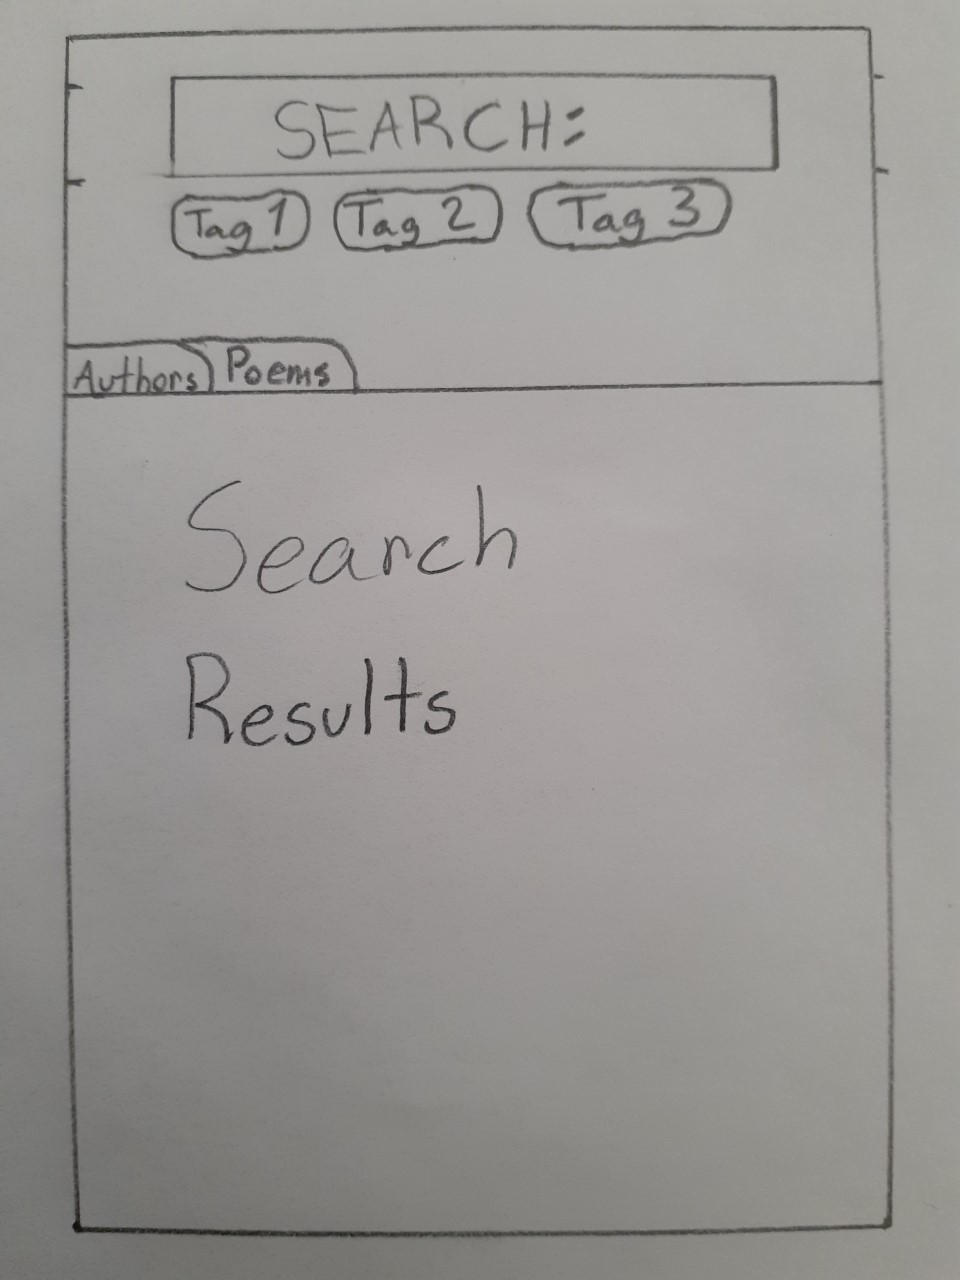 SEARCH:
Tag 1 Tag 2 Tag 3
Authors Poems
Search
Results